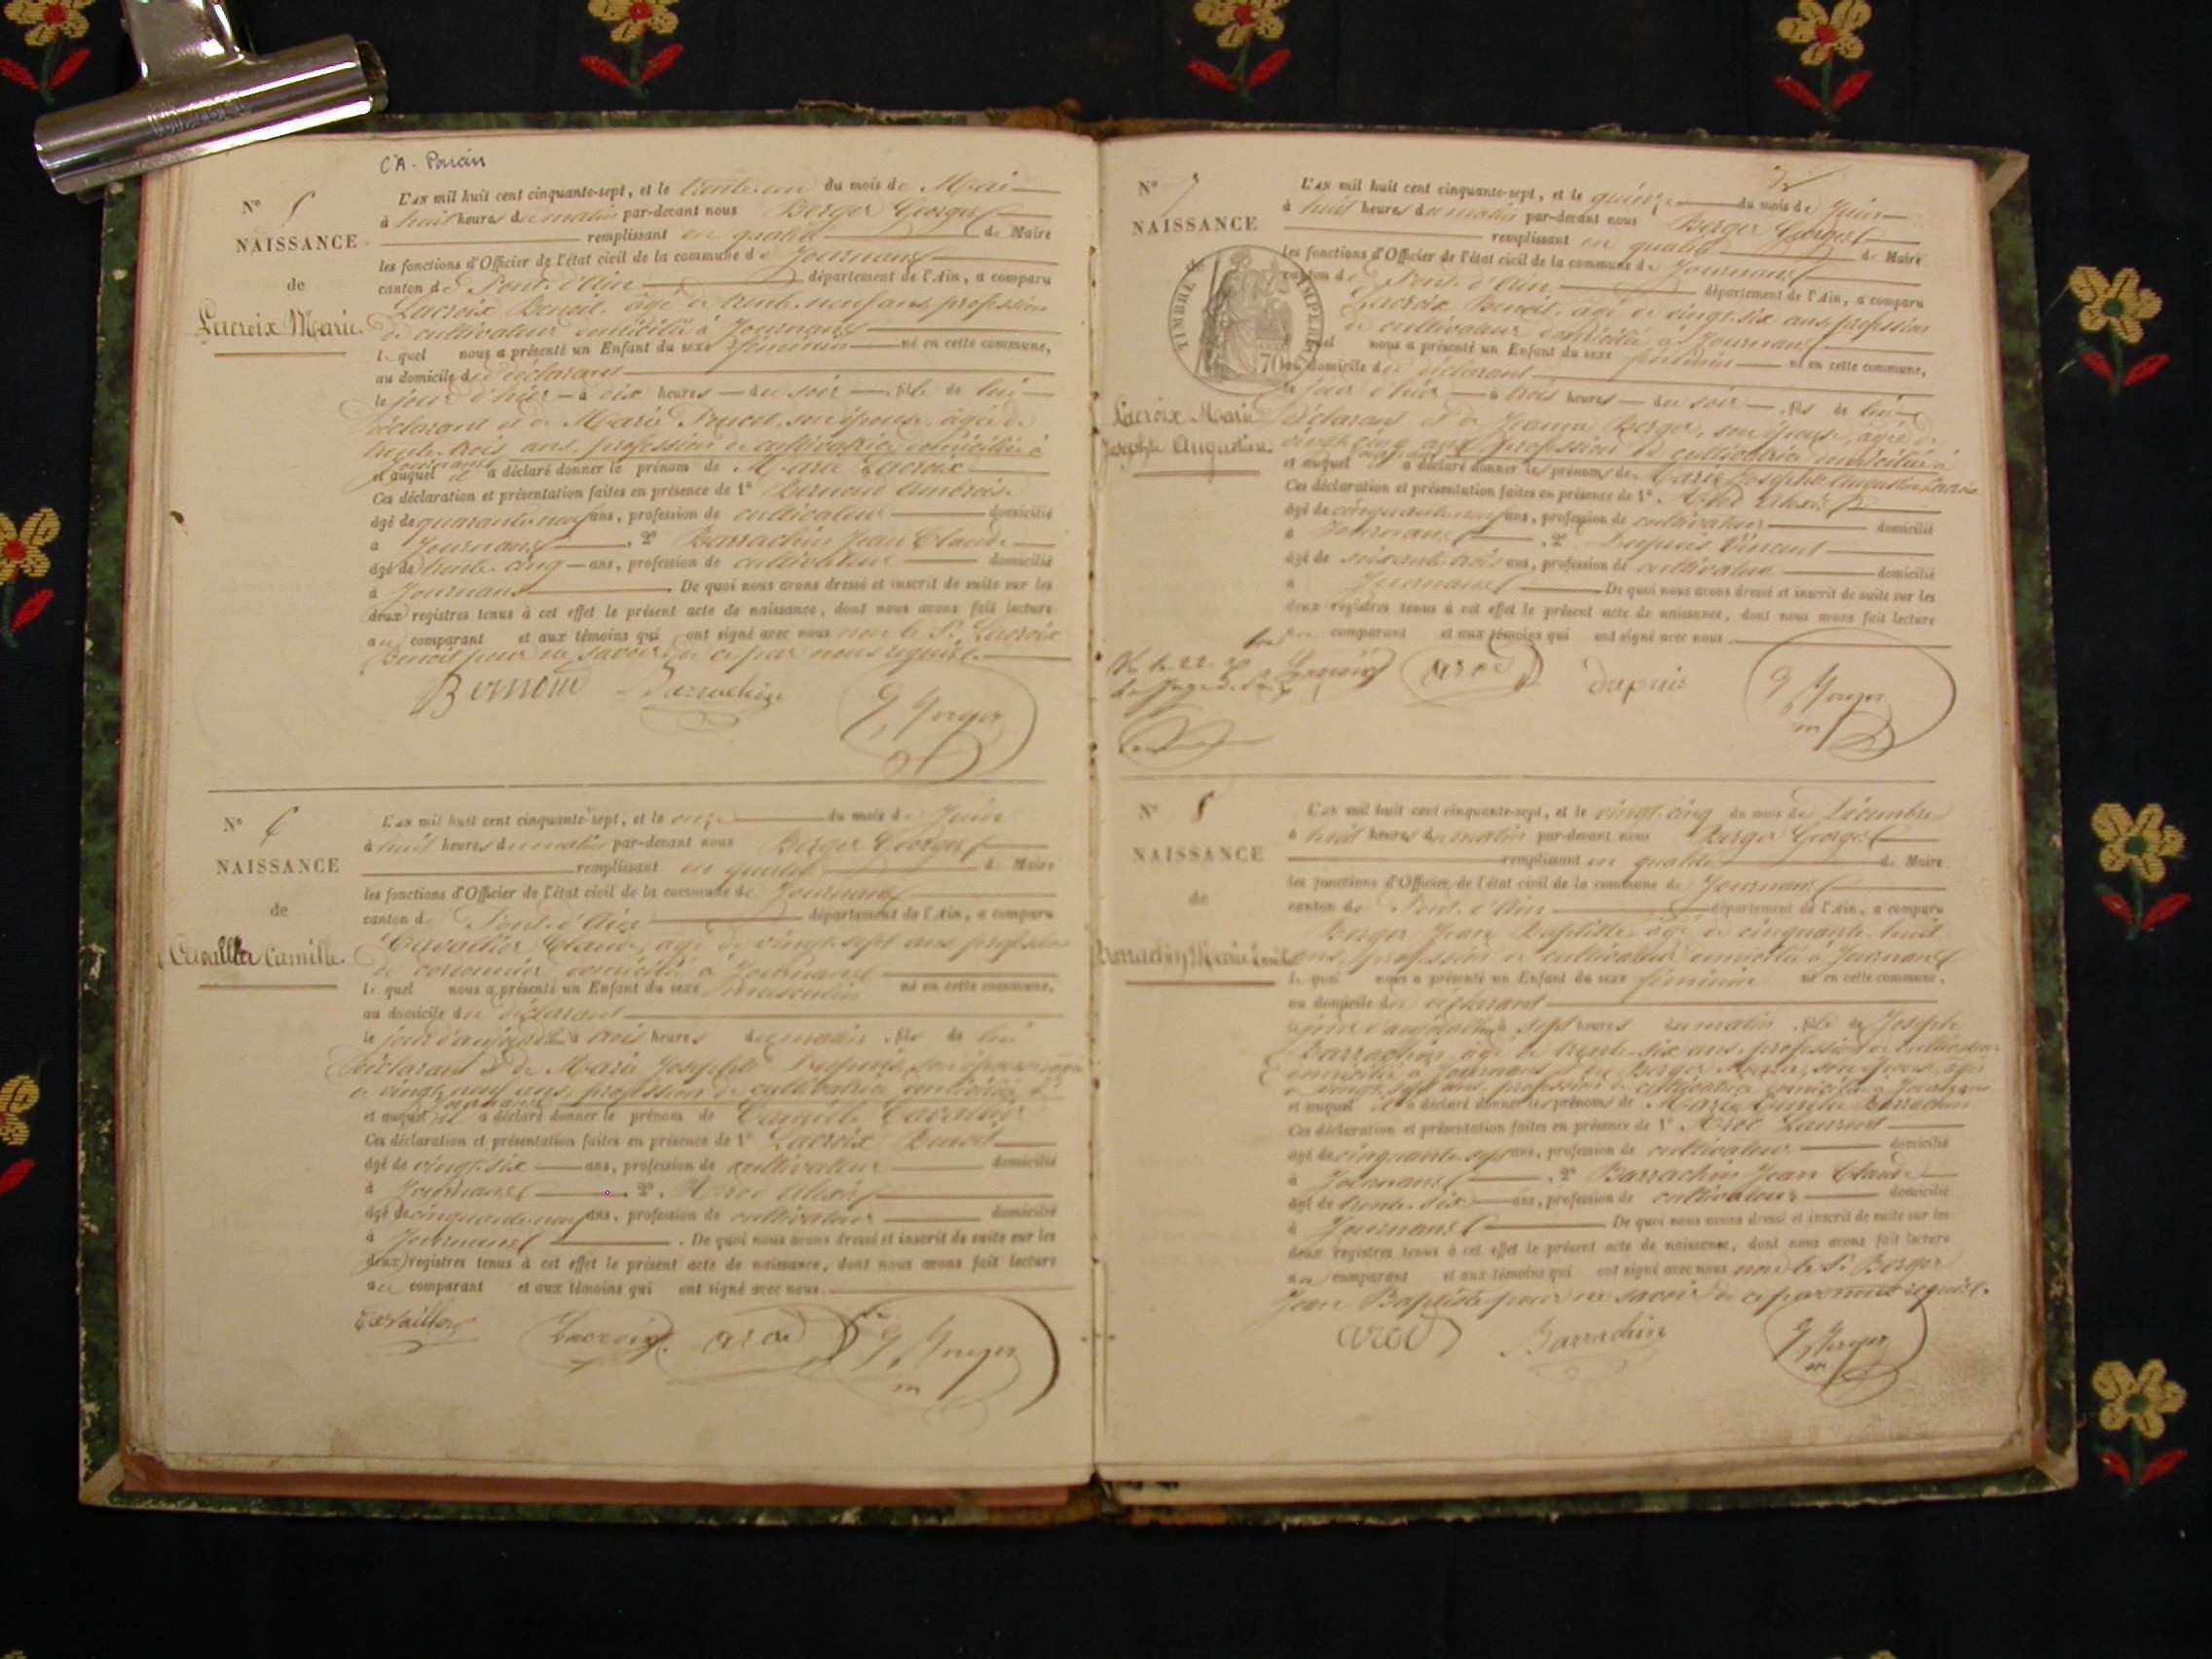 N° 5
NAISSANCE
de
Lacroix Marie.
L'an mil huit cent cinquante-sept, et le trente-un du mois de Mai
à huit heures du matin par-devant nous Berger Georges
remplissant en qualité de Maire
les fonctions d'Officier de l'état civil de la commune de Journans
canton de Pont-d'Ain département de l'Ain, a comparu
Lacroix Benoit, âgé de trente-neuf ans, profession
de cultivateur domicilié à Journans
lequel nous a présenté un Enfant du sexe féminin né en cette commune,
au domicile du déclarant
le jour d'hier à dix heures du soir, fils de lui
déclarant et de Marie son épouse, âgée de
trente-trois ans, profession de cultivatrice domiciliée à
Journans
et auquel il a déclaré donner le prénom de Marie Lacroix
Ces déclaration et présentation faites en présence de 1° Bernoud Ambroise
âgé de quarante-neuf ans, profession de cultivateur domicilié
à Journans, 2° Barrachin Jean Claude
âgé de trente-cinq ans, profession de cultivateur domicilié
à Journans De quoi nous avons dressé et inscrit de suite sur les
deux registres tenus à cet effet le présent acte de naissance, dont nous avons fait lecture
au comparant et aux témoins qui ont signé avec nous non le Sr. Lacroix
Benoit pour ne savoir de ce par nous requis.
Bernoud Barrachin G Berger
N° 6
NAISSANCE
de
Cavallier Camille.
L'an mil huit cent cinquante-sept, et le onze du mois de Juin
à huit heures du matin par-devant nous Berger Georges
remplissant en qualité de Maire
les fonctions d'Officier de l'état civil de la commune de Journans
canton de Pont-d'Ain département de l'Ain, a comparu
Cavallier Claude, âgé de vingt-sept ans profession
de cordonnier domicilié à Journans
lequel nous a présenté un Enfant du sexe masculin né en cette commune,
au domicile du déclarant
le jour d'aujourd'hui à trois heures du matin, fils de lui
déclarant et de Marie Josephte son épouse, âgée
de vingt-neuf ans, profession de cultivatrice domiciliée à
Journans
et auquel il a déclaré donner le prénom de Camille Cavallier
Ces déclaration et présentation faites en présence de 1° Lacroix Benoit
âgé de vingt-six ans, profession de cultivateur domicilié
à Journans, 2°. Arod Alexis
âgé de cinquante-neuf ans, profession de cultivateur domicilié
à Journans. De quoi nous avons dressé et inscrit de suite sur les
deux registres tenus à cet effet le présent acte de naissance, dont nous avons fait lecture
au comparant et aux témoins qui ont signé avec nous.
Lacroix arod G Berger
m
N° 7
NAISSANCE
de
TIMBRE IMPERIAL
70
Lacroix Marie
Josephte Augustine
L'an mil huit cent cinquante-sept, et le quinze du mois de Juin
à huit heures du matin par-devant nous Berger Georges
remplissant en qualité de Maire
les fonctions d'Officier de l'état civil de la commune de Journans
canton de Pont-d'Ain département de l'Ain, a comparu
Lacroix Benoit, âgé de vingt-six ans, profession
de cultivateur domicilié à Journans
lequel nous a présenté un Enfant du sexe féminin né en cette commune,
au domicile du déclarant
le jour d'hier à trois heures du soir, fils de lui
déclarant et de Jeanne Berger, son épouse, âgée de
vingt-cinq ans profession de cultivatrice domiciliée à
Journans
et auquel a déclaré donner les prénoms de Marie Josephte Augustine Lacroix
Ces déclaration et présentation faites en présence de 1°. Arod Alexis
âgé de cinquante-neuf ans, profession de cultivateur domicilié
à Journans, 2° Dupuis Vincent
âgé de soixante-trois ans, profession de cultivateur domicilié
à Journans De quoi nous avons dressé et inscrit de suite sur les
deux registres tenus à cet effet le présent acte de naissance, dont nous avons fait lecture
au comparant et aux témoins qui ont signé avec nous.
Lacroix arod dupuis G Berger
m
N° 8
NAISSANCE
de
Barrachin Marie Emélie
L'an mil huit cent cinquante-sept, et le vingt-cinq du mois de Décembre
à huit heures du matin par-devant nous Berger Georges
remplissant en qualité de Maire
les fonctions d'Officier de l'état civil de la commune de Journans
canton de Pont-d'Ain département de l'Ain, a comparu
Berger Jean Baptiste âgé de cinquante-huit
ans, profession de cultivateur domicilié à Journans
lequel nous a présenté un Enfant du sexe féminin né en cette commune,
au domicile du déclarant
le jour d'aujourd'hui à sept heures du matin, fils de Joseph
Barrachin, âgé de trente-six ans, profession de cultivateur
domicilié à Journans et de Berger Marie, son épouse, âgée
de vingt-sept ans, profession de cultivatrice domiciliée à Journans
et auquel il a déclaré donner les prénoms de Marie Emélie Barrachin
Ces déclaration et présentation faites en présence de 1° Arod Laurent
âgé de cinquante-sept ans, profession de cultivateur domicilié
à Journans, 2° Barrachin Jean Claude
âgé de trente-six ans, profession de cultivateur domicilié
à Journans De quoi nous avons dressé et inscrit de suite sur les
deux registres tenus à cet effet le présent acte de naissance, dont nous avons fait lecture
au comparant et aux témoins qui ont signé avec nous non le Sr. Berger
Jean Baptiste pour ne savoir de ce par nous requis.
arod Barrachin G Berger
m